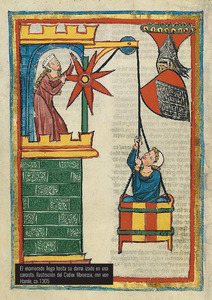 El enamorado llega hasta su dama izado en una
canasta. Ilustración del Codex Manesse, mir von
Hamle, ca. 1305